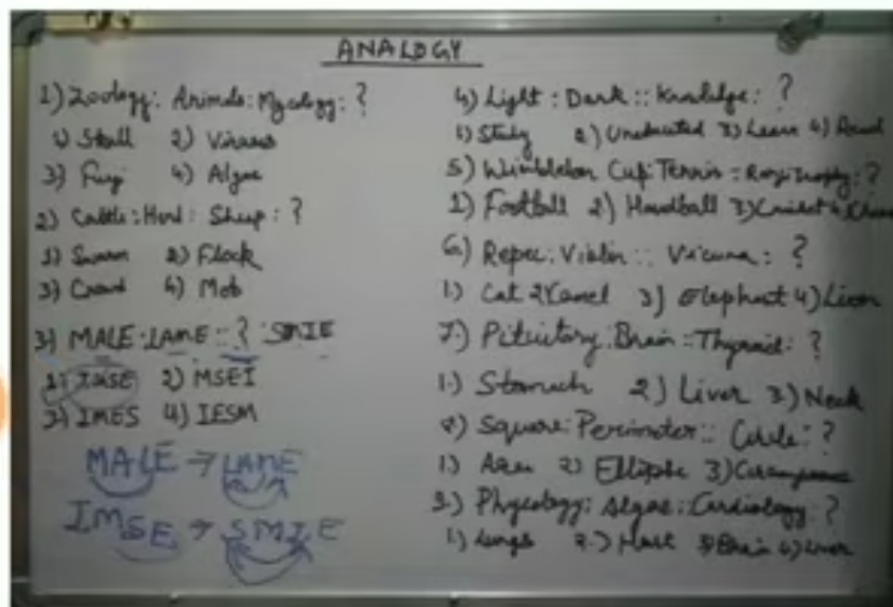 ANALOGY
1) Zoology : Animals : Mycology : ?
1) Stall 2) Viruses
3) Fugi 4) Algae
2) Cattle : Herd : Sheep : ?
1) Swarm 2) Flock
3) Crowd 4) Mob
3) MALE : LAME :: ? : SMIE
1) IMSE 2) MSEI
3) IMES 4) IESM
MALE → LAME
IMSE → SMIE
4) Light : Dark :: Knowledge : ?
1) Study 2) Uneducated 3) Learn 4) Read
5) Wimbledon Cup : Tennis : Ranji trophy : ?
1) Football 2) Handball 3) Cricket 4)
6) : Violin :: Vicuna : ?
1) Cat 2) Camel 3) Elephant 4) Lion
7.) Pituitary : Brain :: Thyroid : ?
1.) Stomach 2) Liver 3.) Neck
8) Square : Perimeter :: Circle : ?
1) Area 2) Ellipse 3)
9.) Phycology : Algae : Cardiology ?
1.) Lungs 2.) Heart 3) Brain 4) Liver